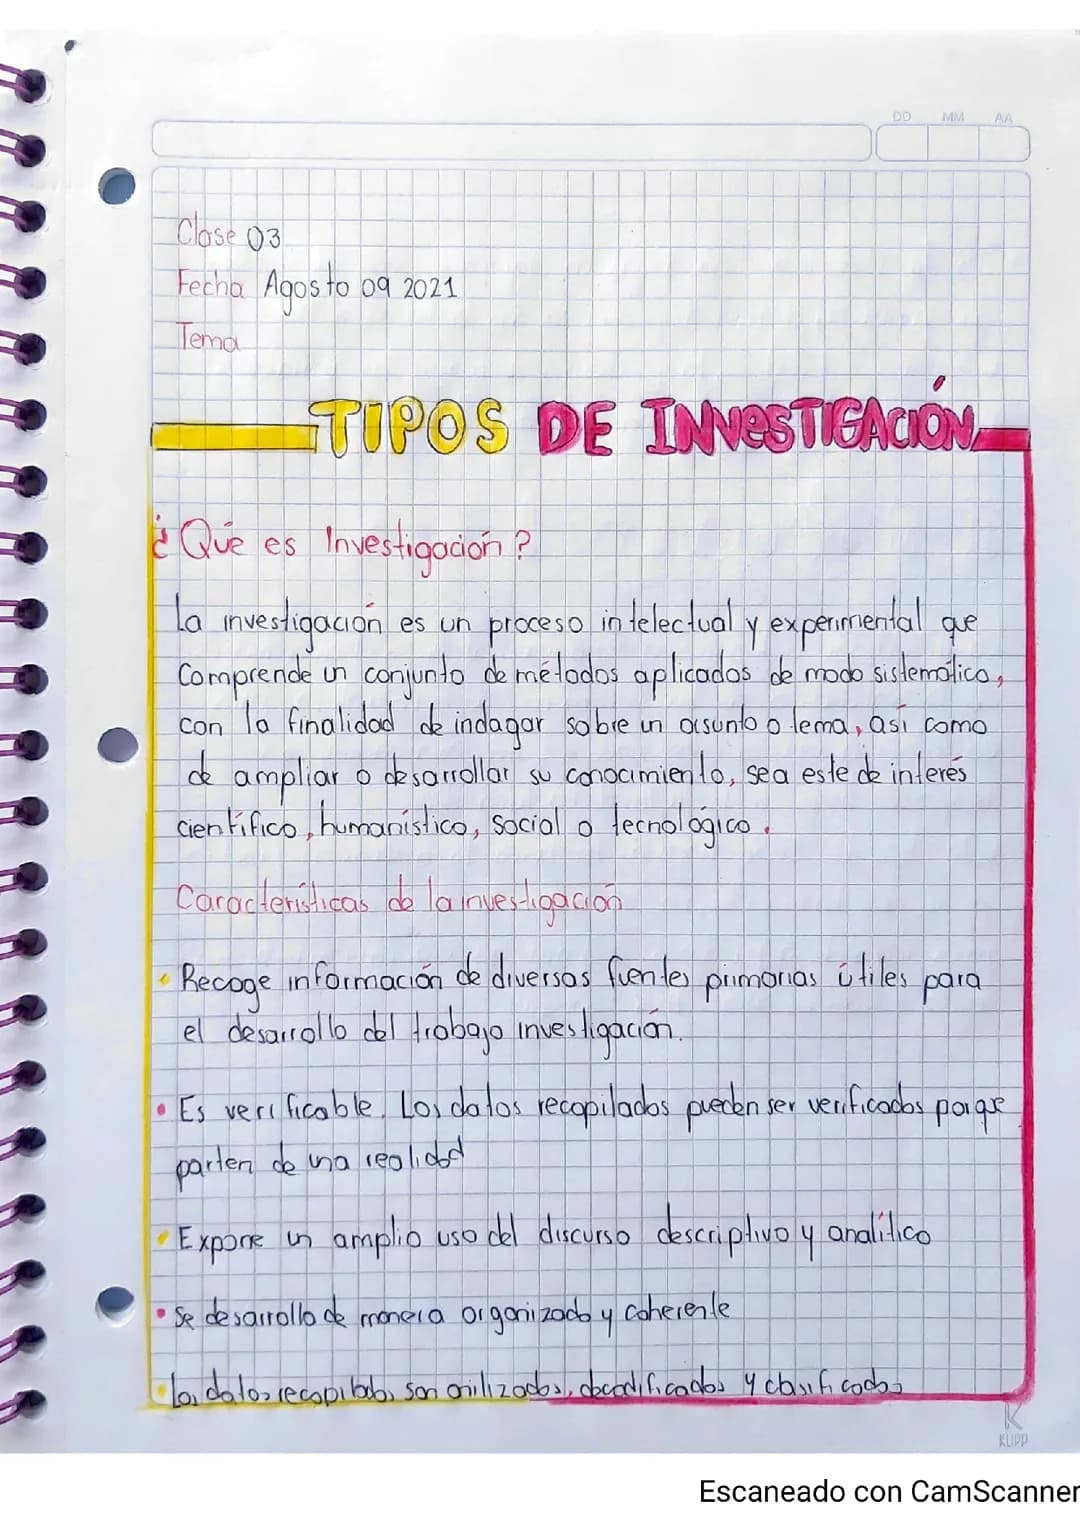 DD MM AA
Clase 03
Fecha Agosto 09 2021
Tema
TIPOS DE INVESTIGACIÓN
¿Qué es Investigación?
La investigación es un proceso intelectual y experimental que
Comprende un conjunto de métodos aplicados de modo sistemático,
con la finalidad de indagar sobre un asunto o tema, así como
de ampliar o desarrollar su conocimiento, sea este de interés
científico, humanístico, social o tecnológico.
Características de la investigación
• Recoge información de diversas fuentes primarias útiles para
el desarrollo del trabajo investigación.
• Es verificable. Los datos recopilados pueden ser verificados porque
parten de una realidad
• Expone un amplio uso del discurso descriptivo y analítico
• Se desarrolla de manera organizada y coherente
• Los datos recopilados son anilizados, decodificados y clasificados
K
KLIPP
Escaneado con CamScanner